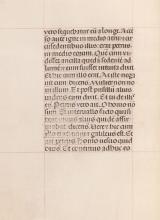 vero sequebatur eū a longe. Accē
so aūt igne in medio atrii et cir
cūsedentibus illis: erat petrus
in medio eorum. Quē cum vi
disset ancilla quedā sedentē ad
lumē et eum fuisset intuita dixit.
Et hic cum illo erat. At ille nega
vit eum dicens. Mulier non no
vi illum. Et post pusillū alius
videns eum dixit. Et tu de illis
es. Petrus vero ait. O homo nō
sum. Et intervallo facto quasi
hore unius: alius quidā affir
mabat dicens. Vere et hic cum
illo erat: nam et galileus est. Et
ait petrus. Homo nescio quid
dicis. Et continuo adhuc eo